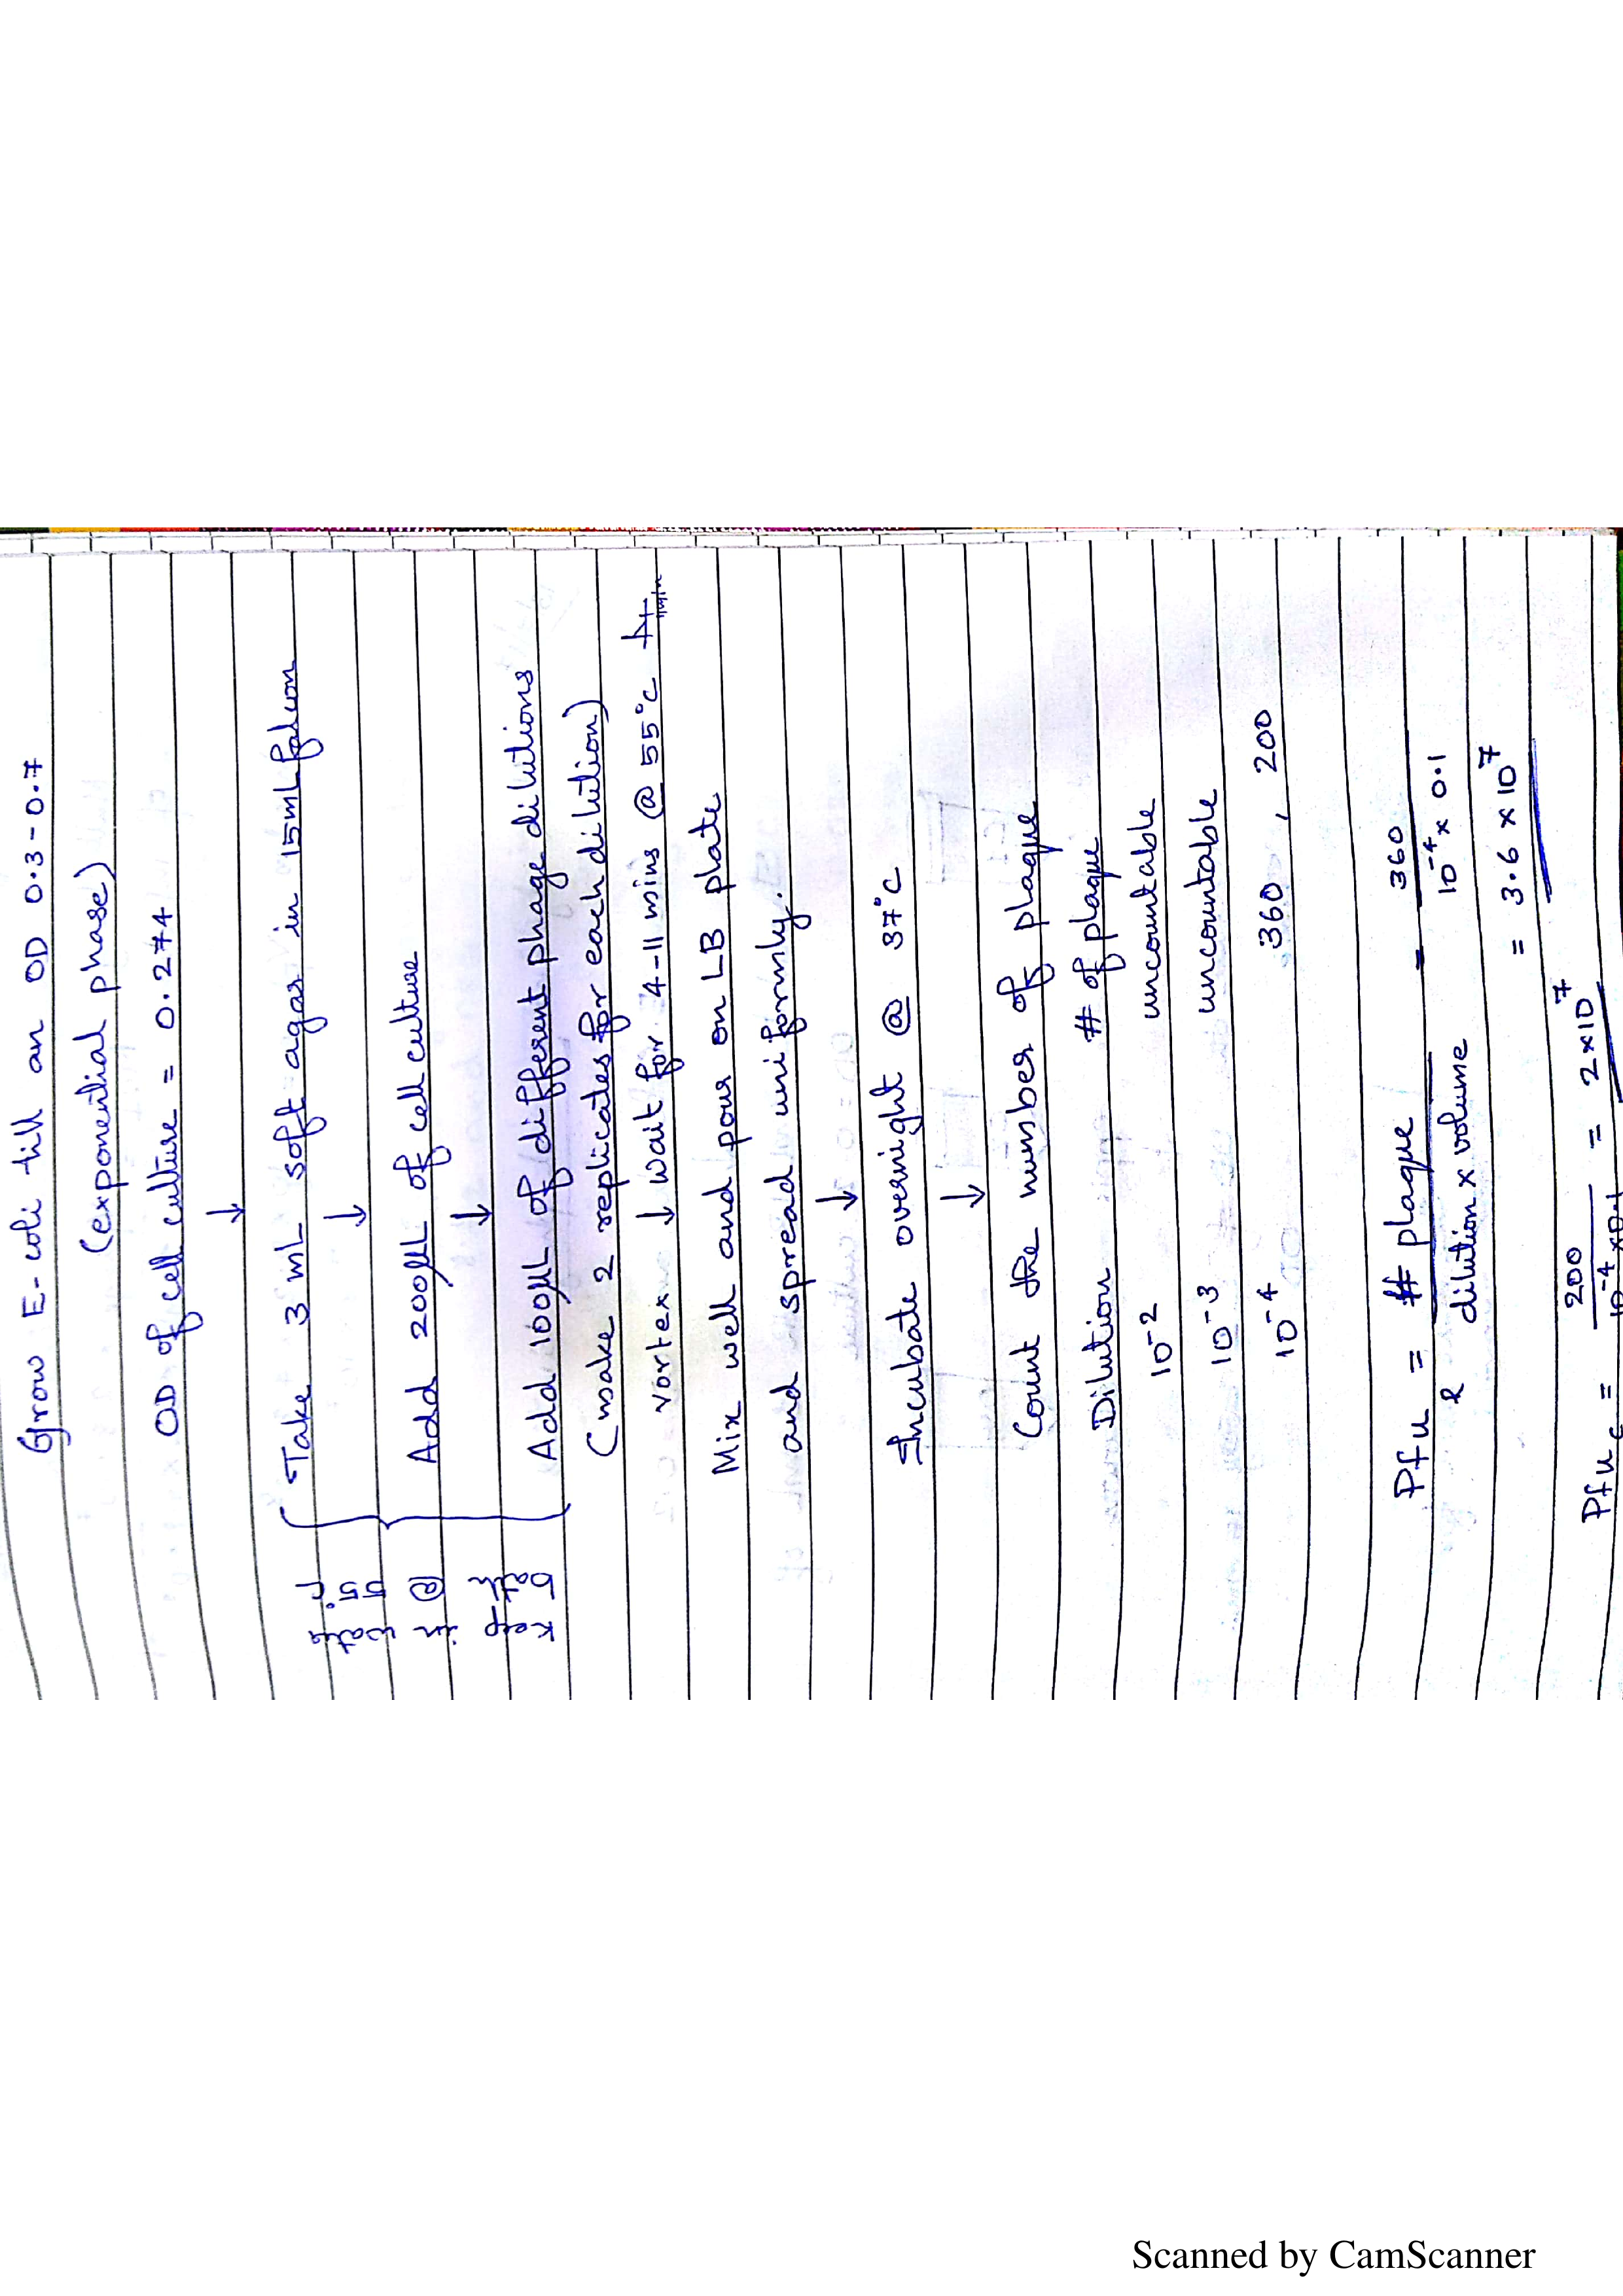 Grow E-coli till an OD 0.3-0.7
(exponential phase)
OD of cell culture = 0.274
↓
Take 3 mL soft agar in 15mL falcon
↓
Add 200μL of cell culture
↓
Add 100μL of different phage dilutions
(make 2 replicates for each dilution)
Keep in water
bath @ 55°C
vortex ↓ wait for 4-11 mins @ 55°C
Mix well and pour on LB plate
and spread uniformly.
↓
Incubate overnight @ 37°C
↓
Count the number of plaque
Dilution # of plaque
10⁻² uncountable
10⁻³ uncountable
10⁻⁴ 360, 200
Pfu = # plaque / dilution x volume = 360 / 10⁻⁴ x 0.1
= 3.6 x 10⁷
Pfu = 200 / 10⁻⁴ x 0.1 = 2 x 10⁷
Scanned by CamScanner